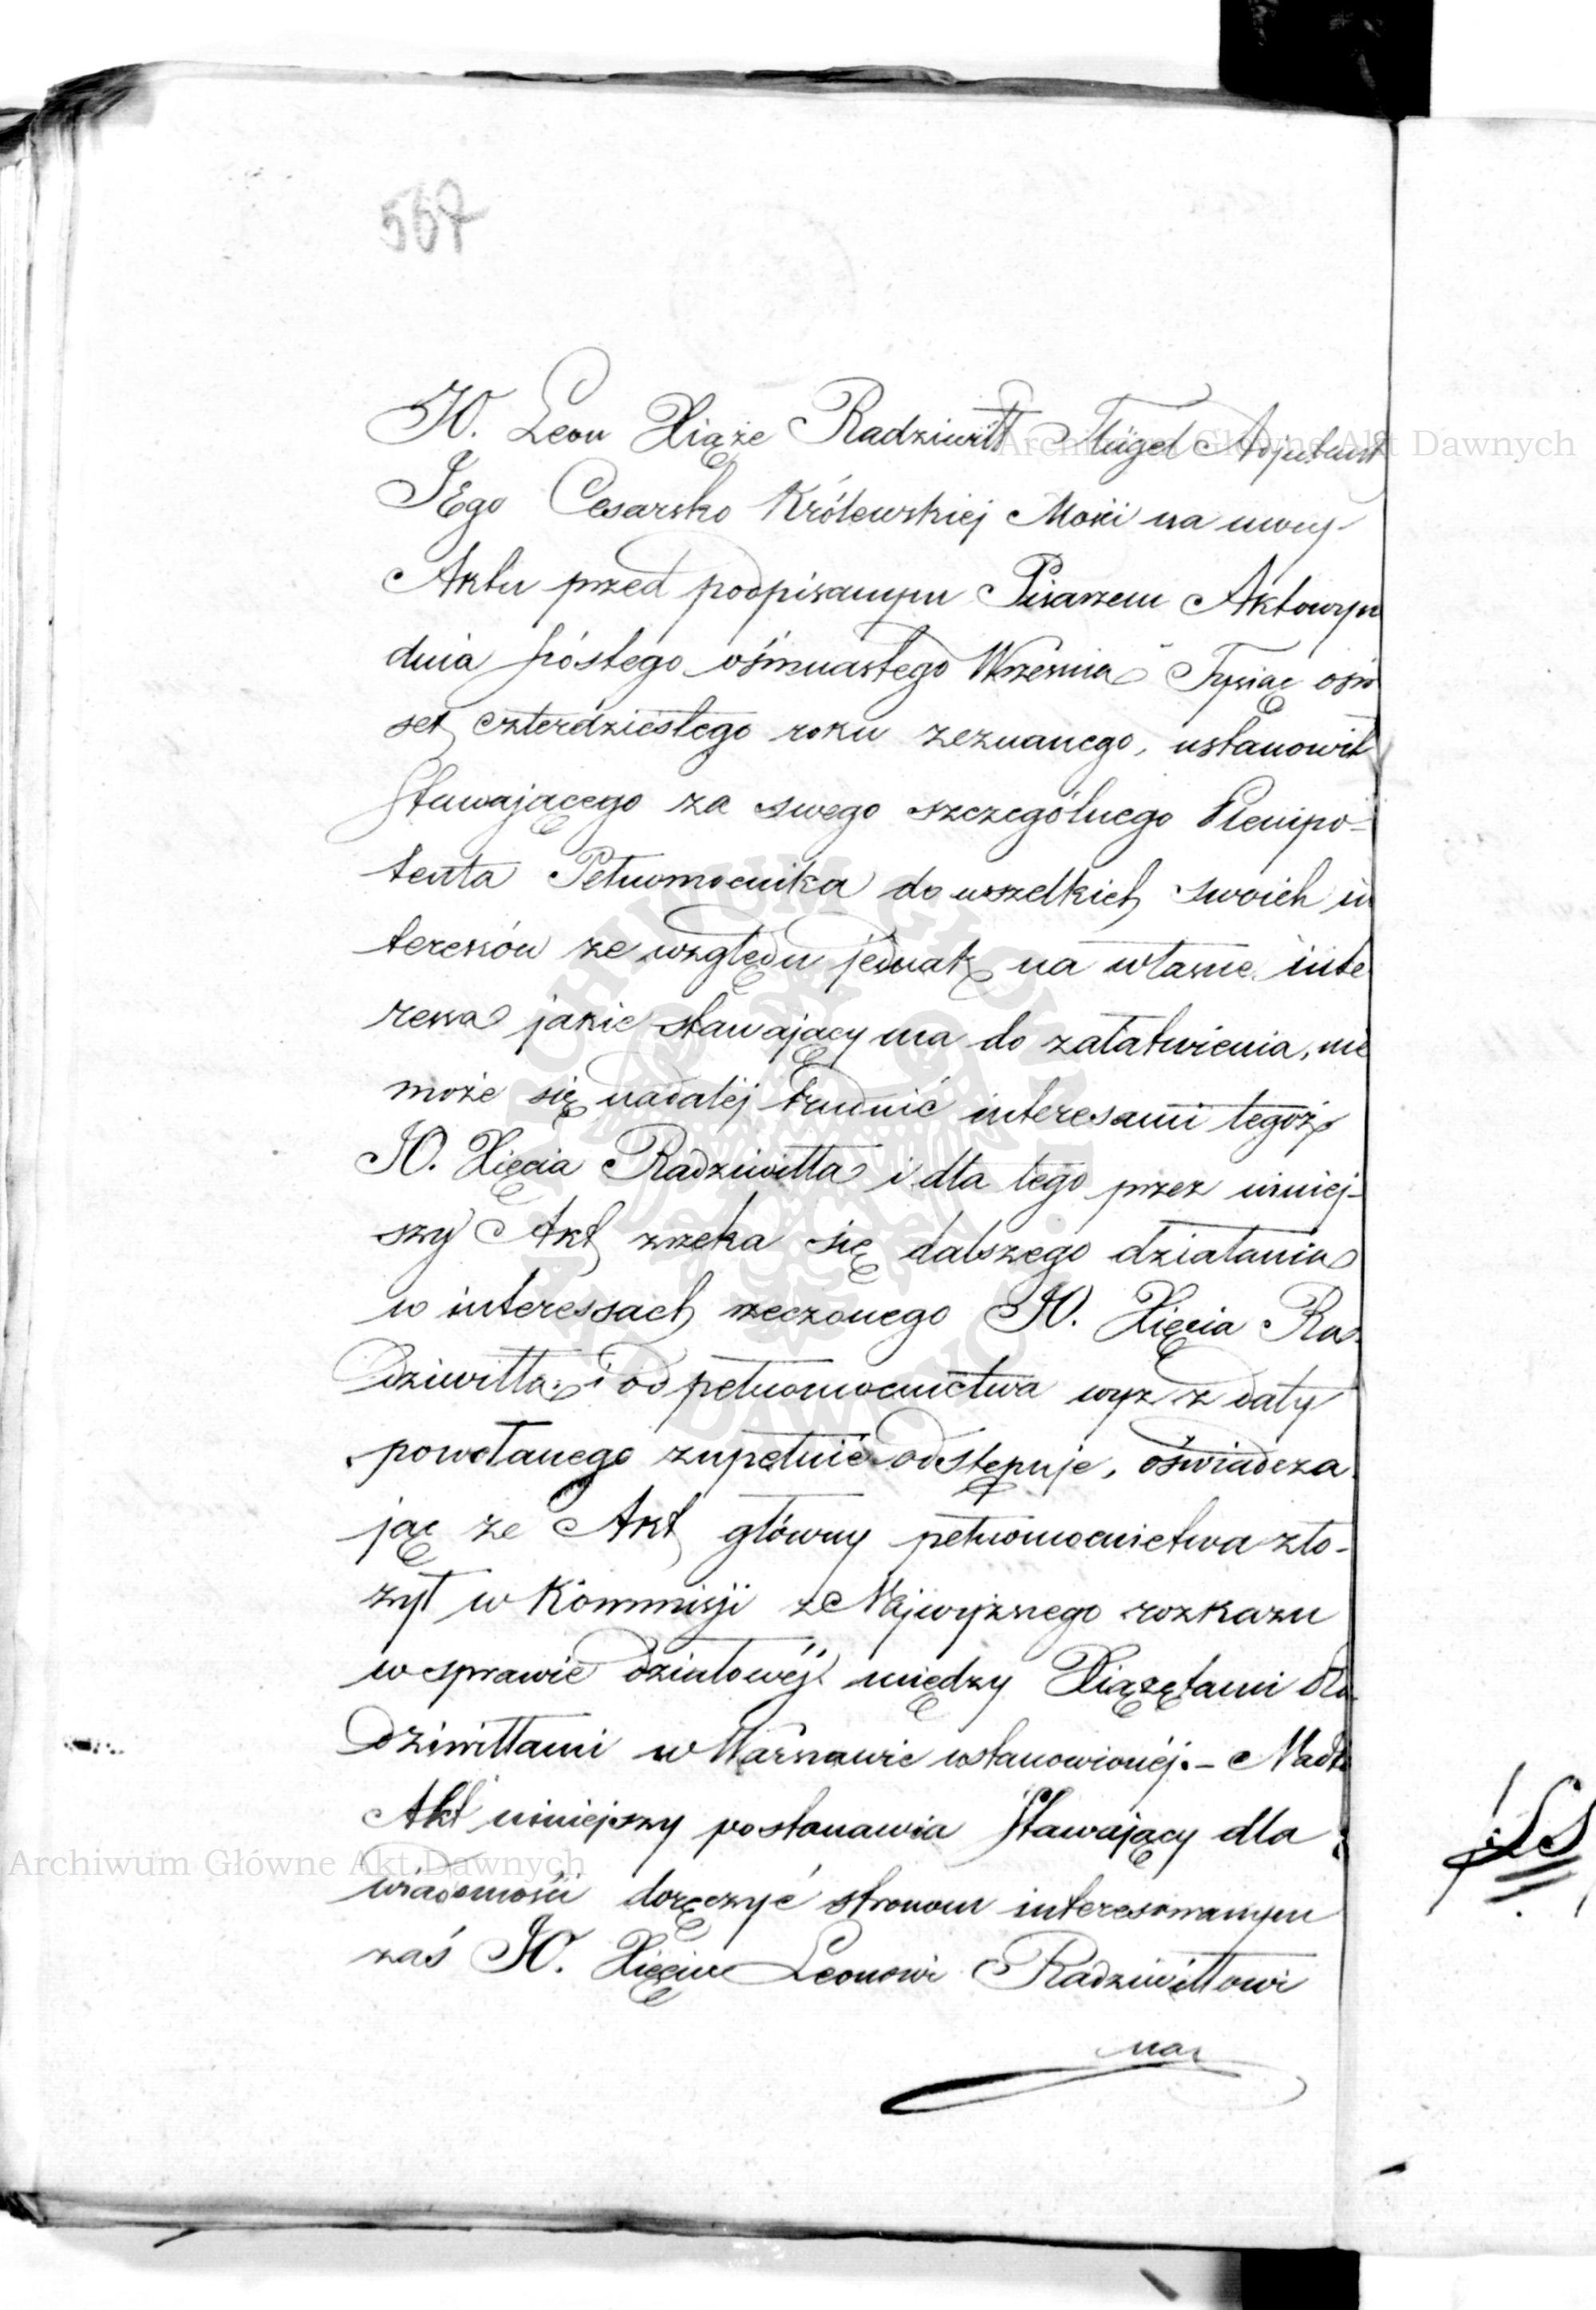 567
JO. Leon Xiąże Radziwiłł Flügel Adjutant
JEgo Cesarsko Królewskiej Mości na mocy
Aktu przed podpisanym Pisarzem Aktowym
dnia szóstego ośmnastego Września Tysiąc ośm
set czterdziestego roku zeznanego, ustanowił
stawającego za swego szczególnego Plenipo-
tenta Pełnomocnika do wszelkich swoich in
teressów ze względu jednak na własne inte
ressa jakie stawający ma do załatwienia, nie
może się nadaléj trudnić interesami tegoż
JO. Xięcia Radziwiłła i dla tego przez niniej-
szy Akt zrzeka się dalszego działania
w interessach rzeczonego JO. Xięcia Ra
dziwiłła i od pełnomocnictwa wyż z daty
powołanego zupełnie odstępuje, oświadcza
jąc że Akt główny pełnomocnictwa zło-
żył w Kommisji z Najwyższego rozkazu
w sprawie działowéj między Xiążętami Ra
dziwiłłami w Warszawie ustanowionéj.-
Akt niniejszy postanawia stawający dla
wiadomości doręczyć stronom interesowanym
zaś JO. Xięciu Leonowi Radziwiłłowi
na
Archiwum Główne Akt Dawnych
Archiwum Główne Akt Dawnych
ARCHIWUM GŁÓWNE AKT DAWNYCH